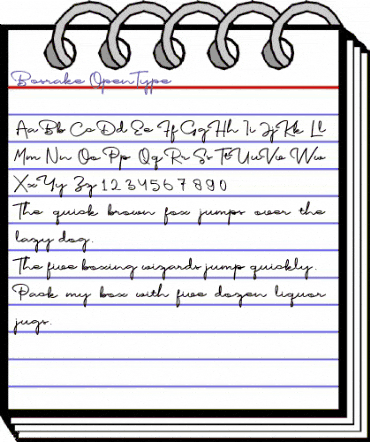 Borrake OpenType
Aa Bb Cc Dd Ee Ff Gg Hh Ii Jj Kk Ll
Mm Nn Oo Pp Qq Rr Ss Tt Uu Vv Ww
Xx Yy Zz 1 2 3 4 5 6 7 8 9 0
The quick brown fox jumps over the
lazy dog.
The five boxing wizards jump quickly.
Pack my box with five dozen liquor
jugs.